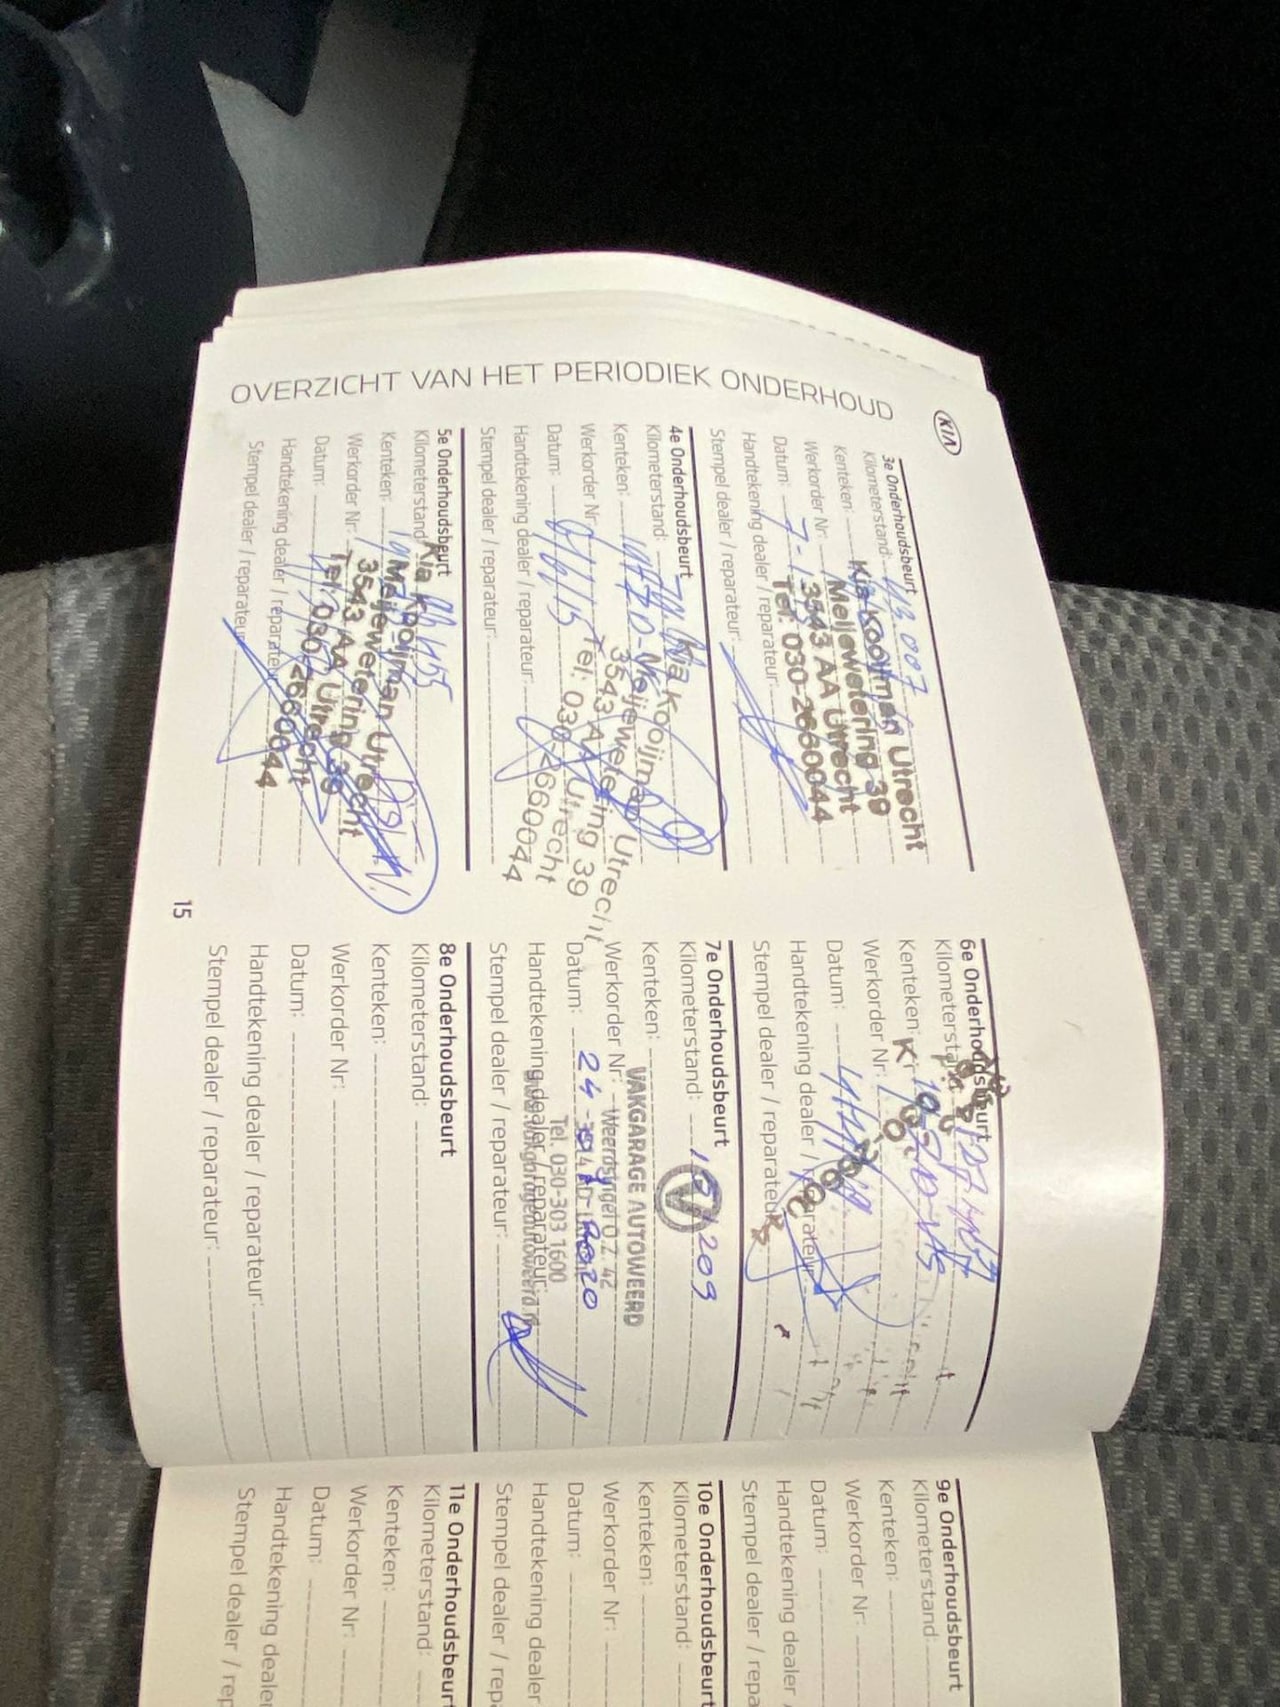 KIA
OVERZICHT VAN HET PERIODIEK ONDERHOUD
3e Onderhoudsbeurt
Kilometerstand:
Kenteken:
Werkorder Nr:
Datum: 7-1
Handtekening dealer / reparateur:
Stempel dealer / reparateur:
Kia Kooijman Utrecht
Meijewetering 39
3543 AA Utrecht
Tel: 030-2660044
4e Onderhoudsbeurt
Kilometerstand:
Kenteken:
Werkorder Nr:
Datum:
Handtekening dealer / reparateur:
Stempel dealer / reparateur:
Kia Kooijman Utrecht
Meijewetering 39
3543 AA Utrecht
Tel: 030-2660044
5e Onderhoudsbeurt
Kilometerstand:
Kenteken:
Werkorder Nr:
Datum:
Handtekening dealer / reparateur:
Stempel dealer / reparateur:
Kia Kooijman Utrecht
Meijewetering 39
3543 AA Utrecht
Tel: 030-2660044
6e Onderhoudsbeurt
Kilometerstand:
Kenteken:
Werkorder Nr:
Datum:
Handtekening dealer / reparateur:
Stempel dealer / reparateur:
7e Onderhoudsbeurt
Kilometerstand:
Kenteken:
Werkorder Nr:
Datum: 24 2020
Handtekening dealer / reparateur:
Stempel dealer / reparateur:
VAKGARAGE AUTOWEERD
Tel. 030-303 1600
8e Onderhoudsbeurt
Kilometerstand:
Kenteken:
Werkorder Nr:
Datum:
Handtekening dealer / reparateur:
Stempel dealer / reparateur:
15
9e Onderhoudsbeurt
Kilometerstand:
Kenteken:
Werkorder Nr:
Datum:
Handtekening dealer /
Stempel dealer / repa
10e Onderhoudsbeurt
Kilometerstand:
Kenteken:
Werkorder Nr:
Datum:
Handtekening dealer
Stempel dealer / rep
11e Onderhoudsbeurt
Kilometerstand:
Kenteken:
Werkorder Nr:
Datum:
Handtekening dealer
Stempel dealer / rep